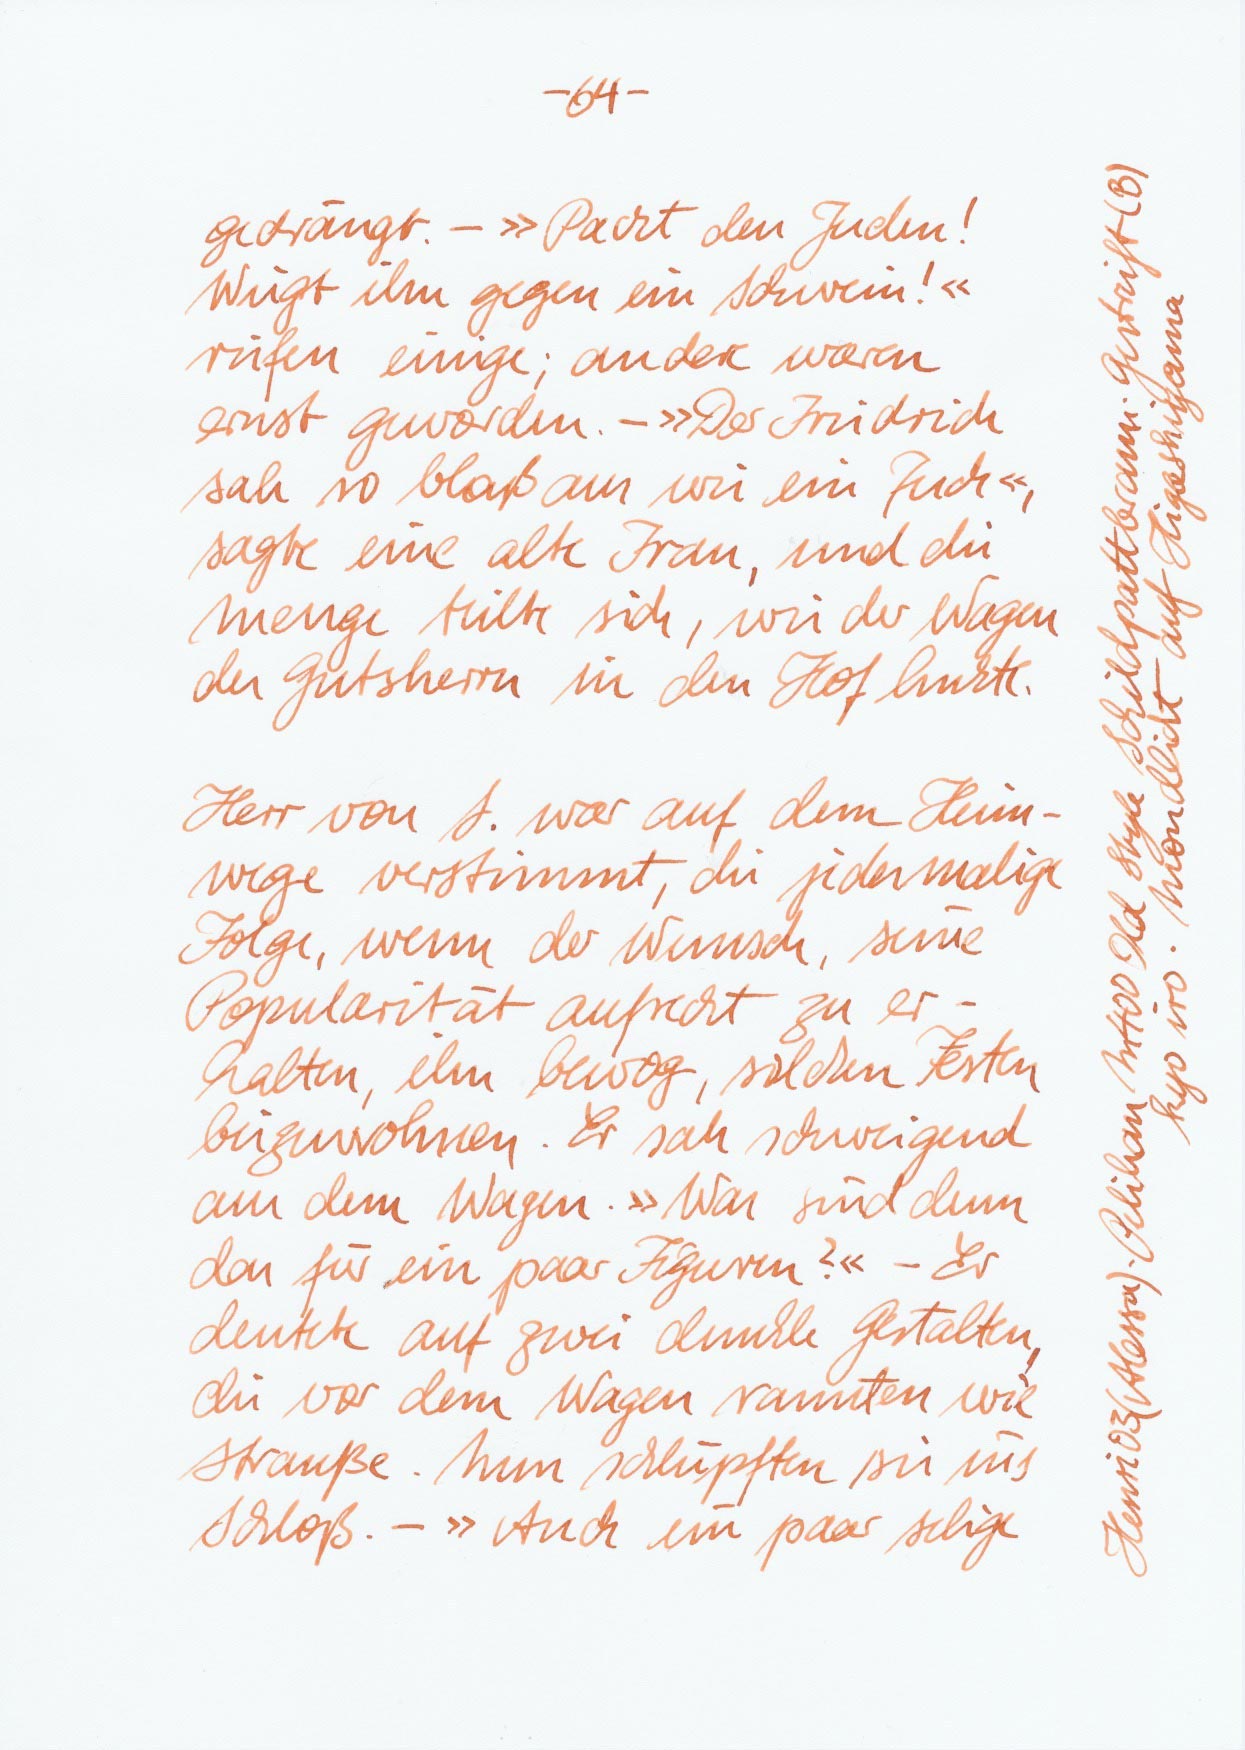 -64-
gedrängt. – »Packt den Juden!
Wiegt ihn gegen ein Schwein!«
riefen einige; andere waren
ernst geworden. – »Der Friedrich
sah so blaß aus wie ein Tuch«,
sagte eine alte Frau, und die
Menge teilte sich, wie der Wagen
des Gutsherrn in den Hof lenkte.
Herr von S. war auf dem Heim-
wege verstimmt, die jedesmalige
Folge, wenn der Wunsch, seine
Popularität aufrecht zu er-
halten, ihn bewog, solchen Festen
beizuwohnen. Er sah schweigend
aus dem Wagen. »Was sind denn
das für ein paar Figuren?« – Er
deutete auf zwei dunkle Gestalten,
die vor dem Wagen rannten wie
Strauße. Nun schlüpften sie ins
Schloß. – »Auch ein paar selige
Henri 03 (Alessa). Pelikan M400 Old Style Schildpattbraun. Gestreift (B)
kyo iro. Mondlicht auf Higashiyama